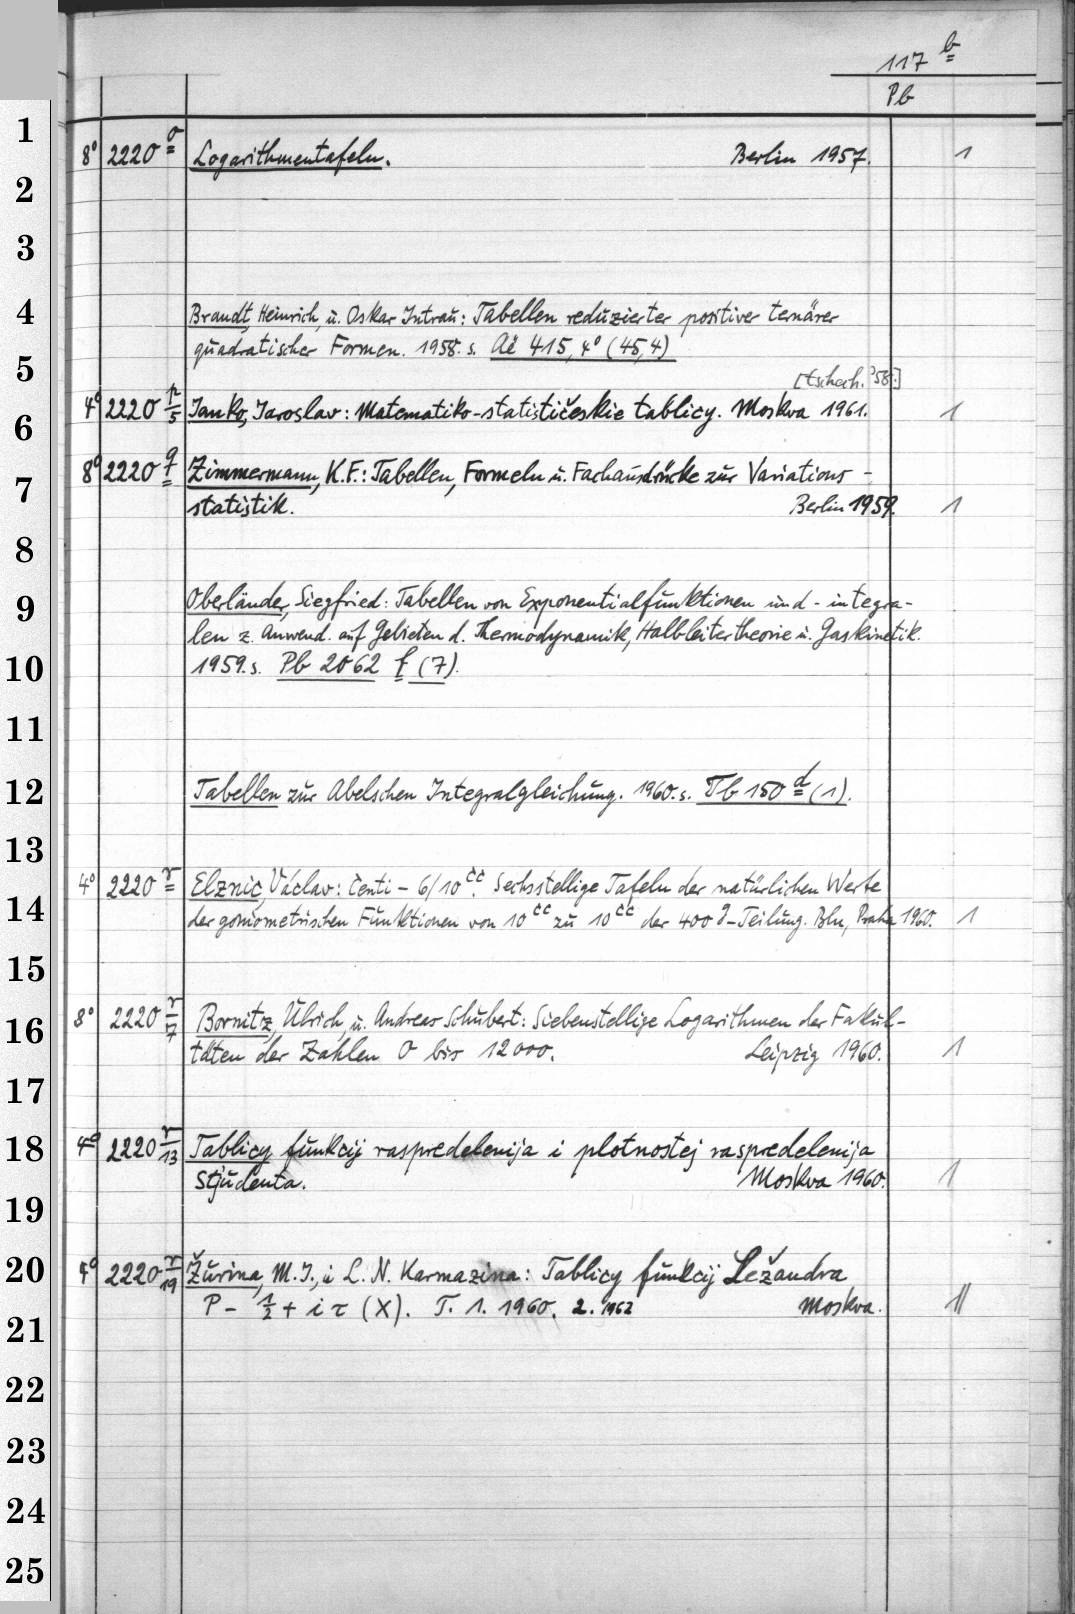 117 b
Pb
1
8° 2220 o Logarithmentafeln. Berlin 1957. 1
2
3
4
Brandt, Heinrich, u. Oskar Intrau: Tabellen reduzierter positiver ternärer
quadratischer Formen. 1958. s. Aë 415, 4° (45,4)
5
[tschech. '58.]
4° 2220 p/5 Janko, Jaroslav: Matematiko-statističeskie tablicy. Moskva 1961. 1
6
8° 2220 q Zimmermann, K.F.: Tabellen, Formeln u. Fachausdrücke zur Variations-
7
statistik. Berlin 1959. 1
8
9
Oberländer, Siegfried: Tabellen von Exponentialfunktionen und -integra-
len z. Anwend. auf Gebieten d. Thermodynamik, Halbleitertheorie u. Gaskinetik.
10
1959. s. Pb 2062 f (7).
11
12
Tabellen zur Abelschen Integralgleichung. 1960. s. Tb 150 d (1).
13
4° 2220 r Elznic, Václav: Centi - 6/10 cc. Sechsstellige Tafeln der natürlichen Werte
14
der goniometrischen Funktionen von 10 cc zu 10 cc der 400 g-Teilung. Bln, Praha 1960. 1
15
8° 2220 r/7 Bornitz, Ulrich, u. Andreas Schubert: Siebenstellige Logarithmen der Fakul-
16
täten der Zahlen 0 bis 12000. Leipzig 1960. 1
17
18
4° 2220 r/13 Tablicy funkcij raspredelenija i plotnostej raspredelenija
Stjudenta. Moskva 1960. 1
19
20
4° 2220 r/19 Žurina, M.I., i L.N. Karmazina: Tablicy funkcij Ležandra
P - 1/2 + i τ (X). T. 1. 1960. 2. 1962 Moskva. 11
21
22
23
24
25